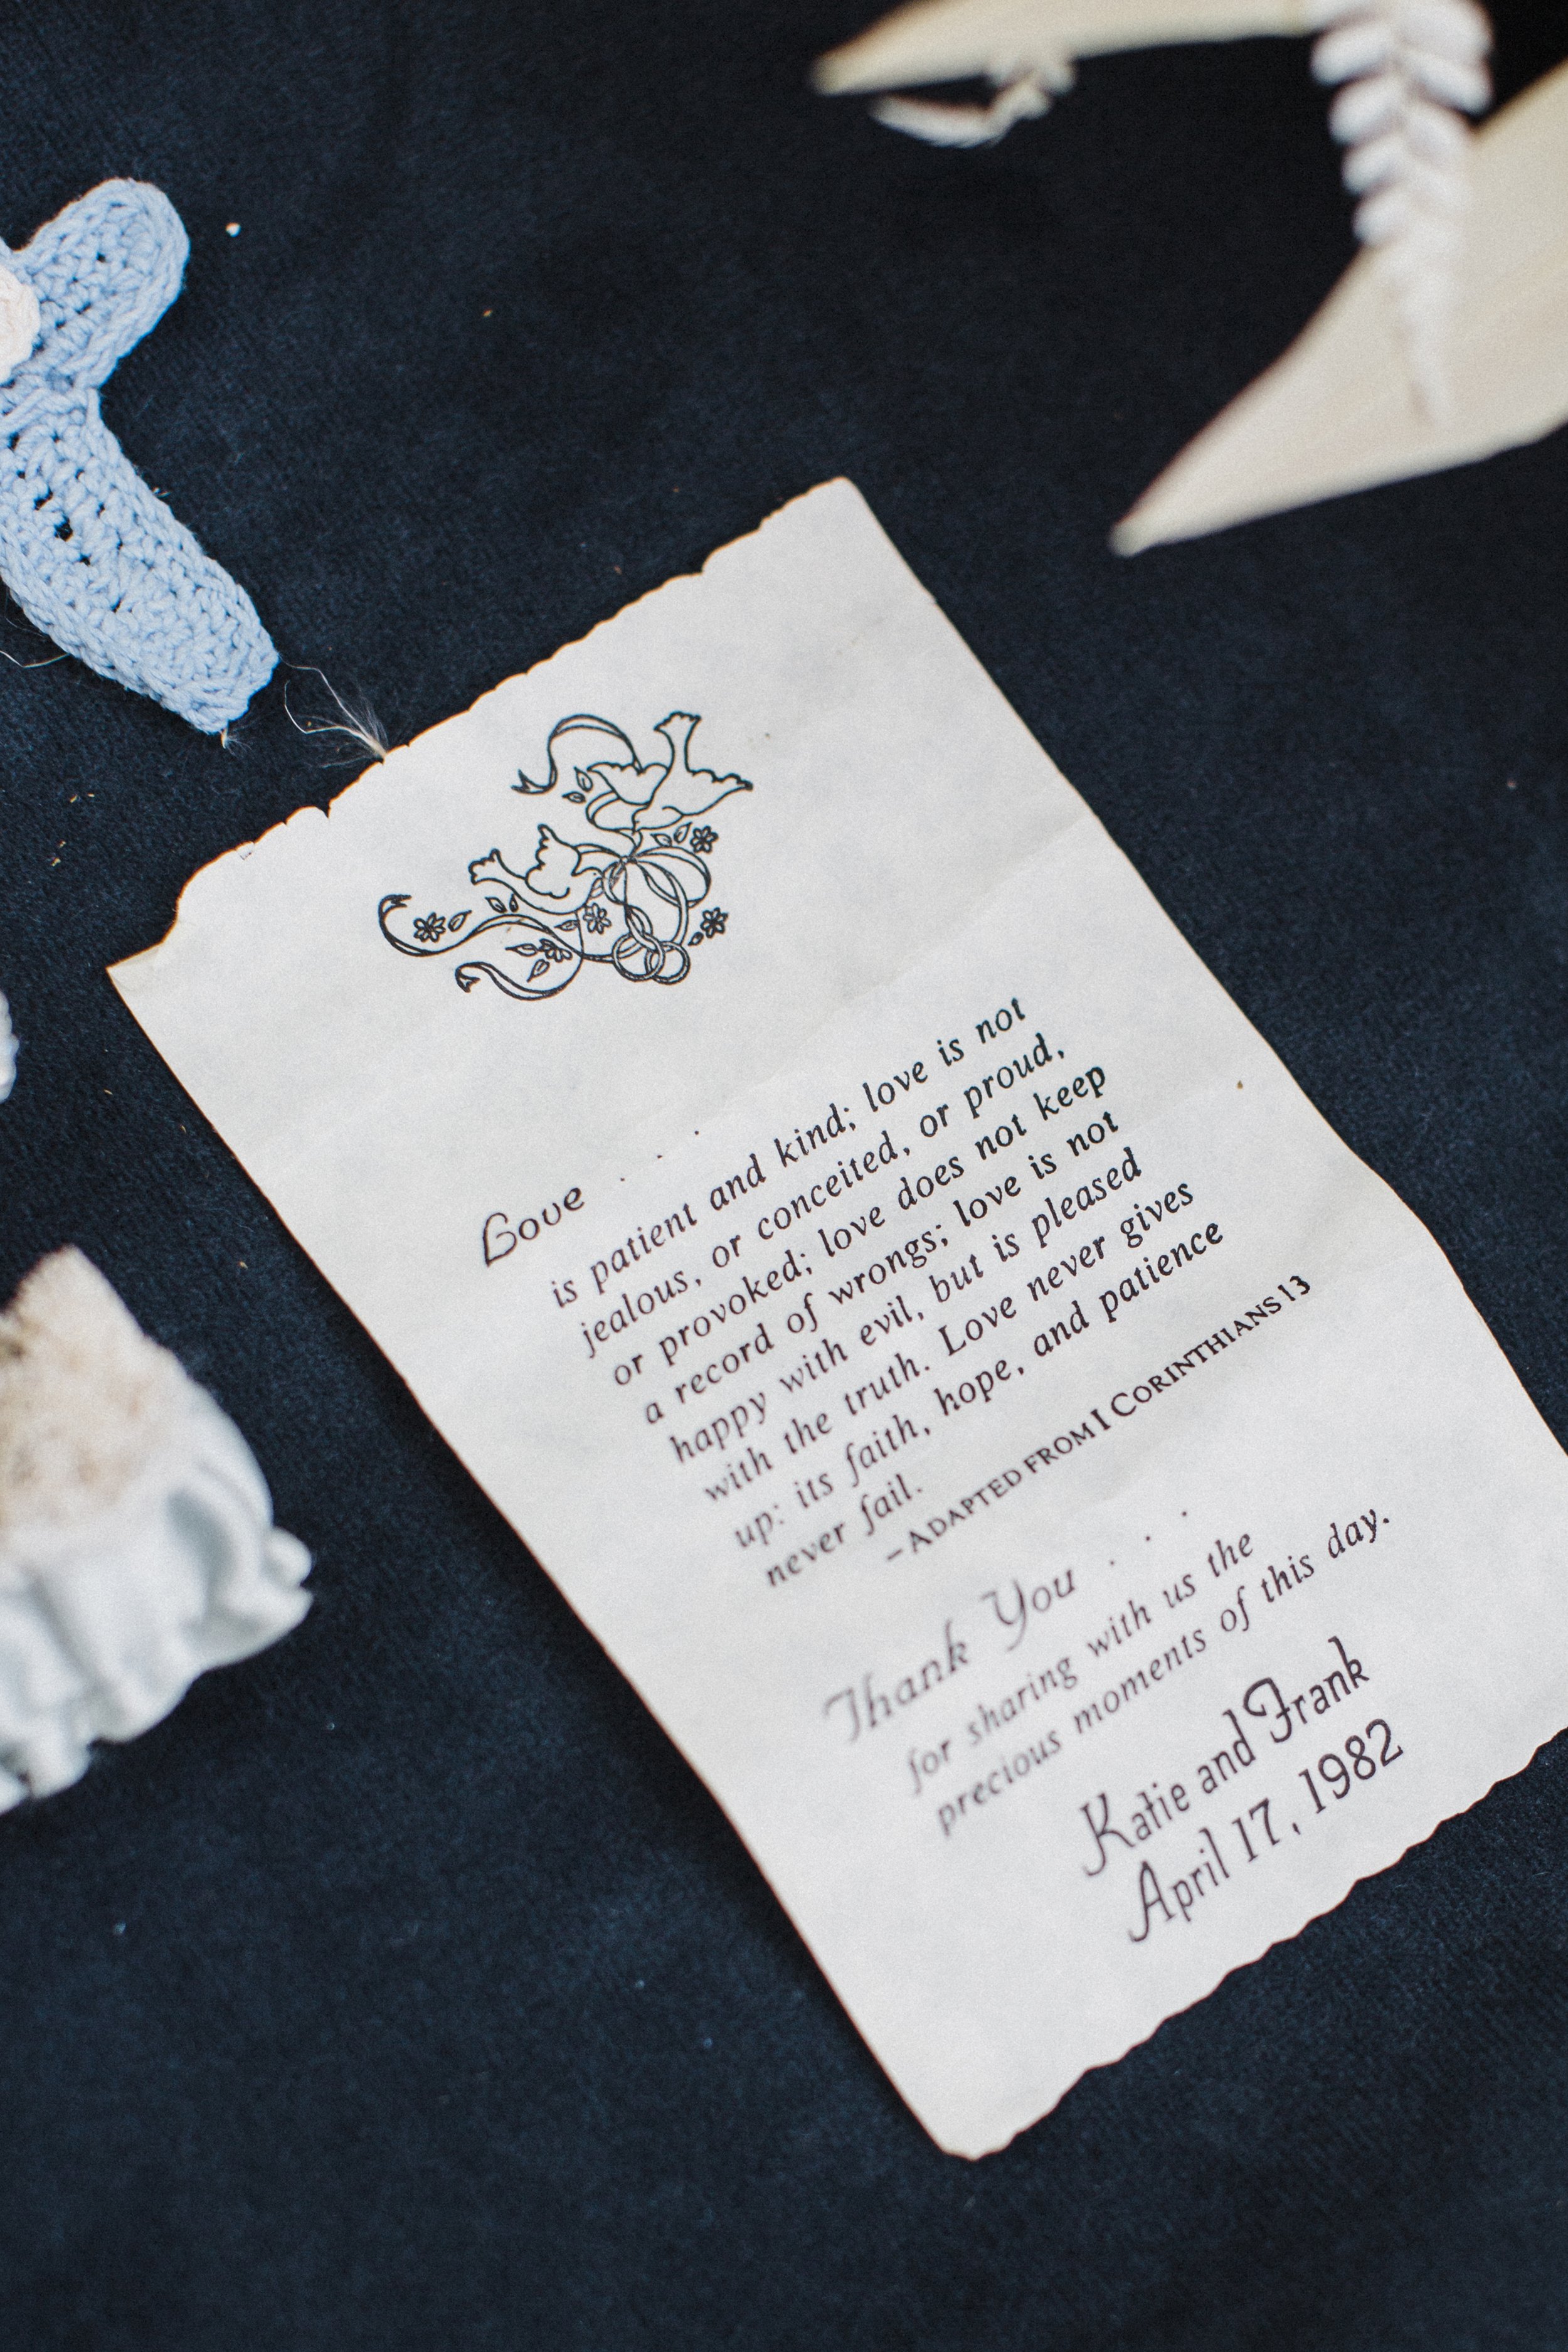 Love . . .
is patient and kind; love is not
jealous, or conceited, or proud,
or provoked; love does not keep
a record of wrongs; love is not
happy with evil, but is pleased
with the truth. Love never gives
up: its faith, hope, and patience
never fail.
–ADAPTED FROM I CORINTHIANS 13
Thank You . . .
for sharing with us the
precious moments of this day.
Katie and Frank
April 17, 1982